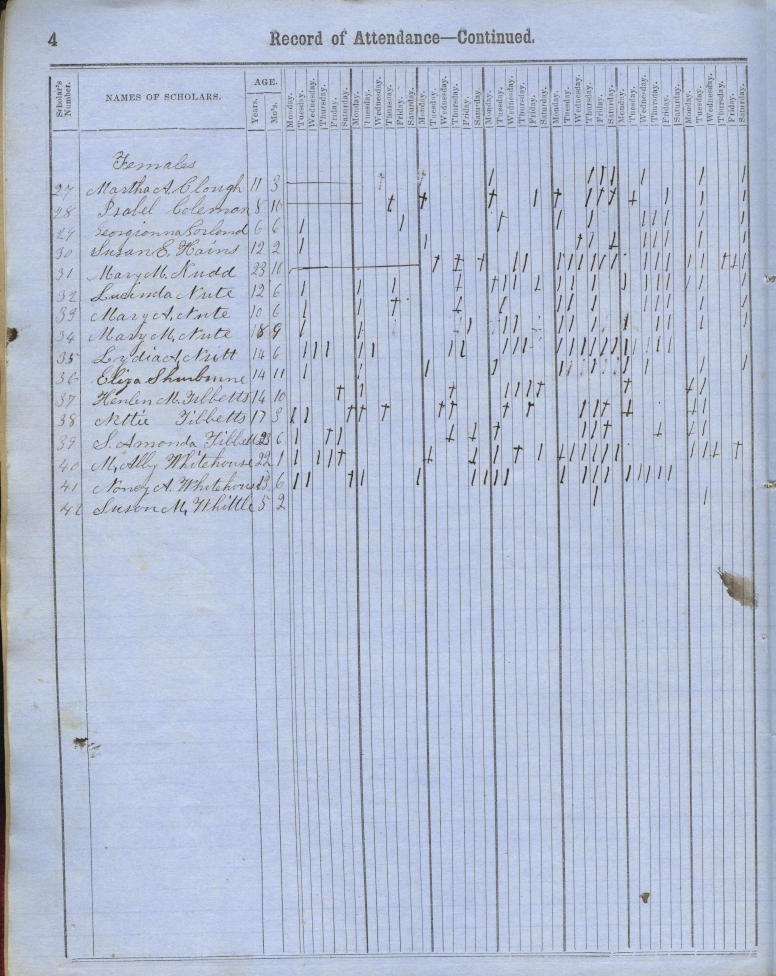 4
Record of Attendance—Continued.
Scholar's Number. NAMES OF SCHOLARS. AGE. Years. Mo's. Monday. Tuesday. Wednesday. Thursday. Friday. Saturday. Monday. Tuesday. Wednesday. Thursday. Friday. Saturday. Monday. Tuesday. Wednesday. Thursday. Friday. Saturday. Monday. Tuesday. Wednesday. Thursday. Friday. Saturday. Monday. Tuesday. Wednesday. Thursday. Friday. Saturday. Monday. Tuesday. Wednesday. Thursday. Friday. Saturday. Monday. Tuesday. Wednesday. Thursday. Friday. Saturday.
Females
27 Martha A. Clough 11 3
28 Isabel Coleman 8 10
29 Georgianna 6 6
30 Susan E. Hains 12 2
31 Mary M. Nudd 23 10
32 Lucinda Nute 12 6
33 Mary A. Nute 10 6
34 Mary M. Nute 18 9
35 Lydia A. Nutt 14 6
36 Eliza Shurbourne 14 11
37 M. Tibbetts 14 10
38 Nettie Tibbetts 17 3
39 S. Amonda 23 6
40 M. Abby Whitehouse 22 1
41 Nancy A. Whitehouse 13 6
42 Susan M. Whittle 5 2